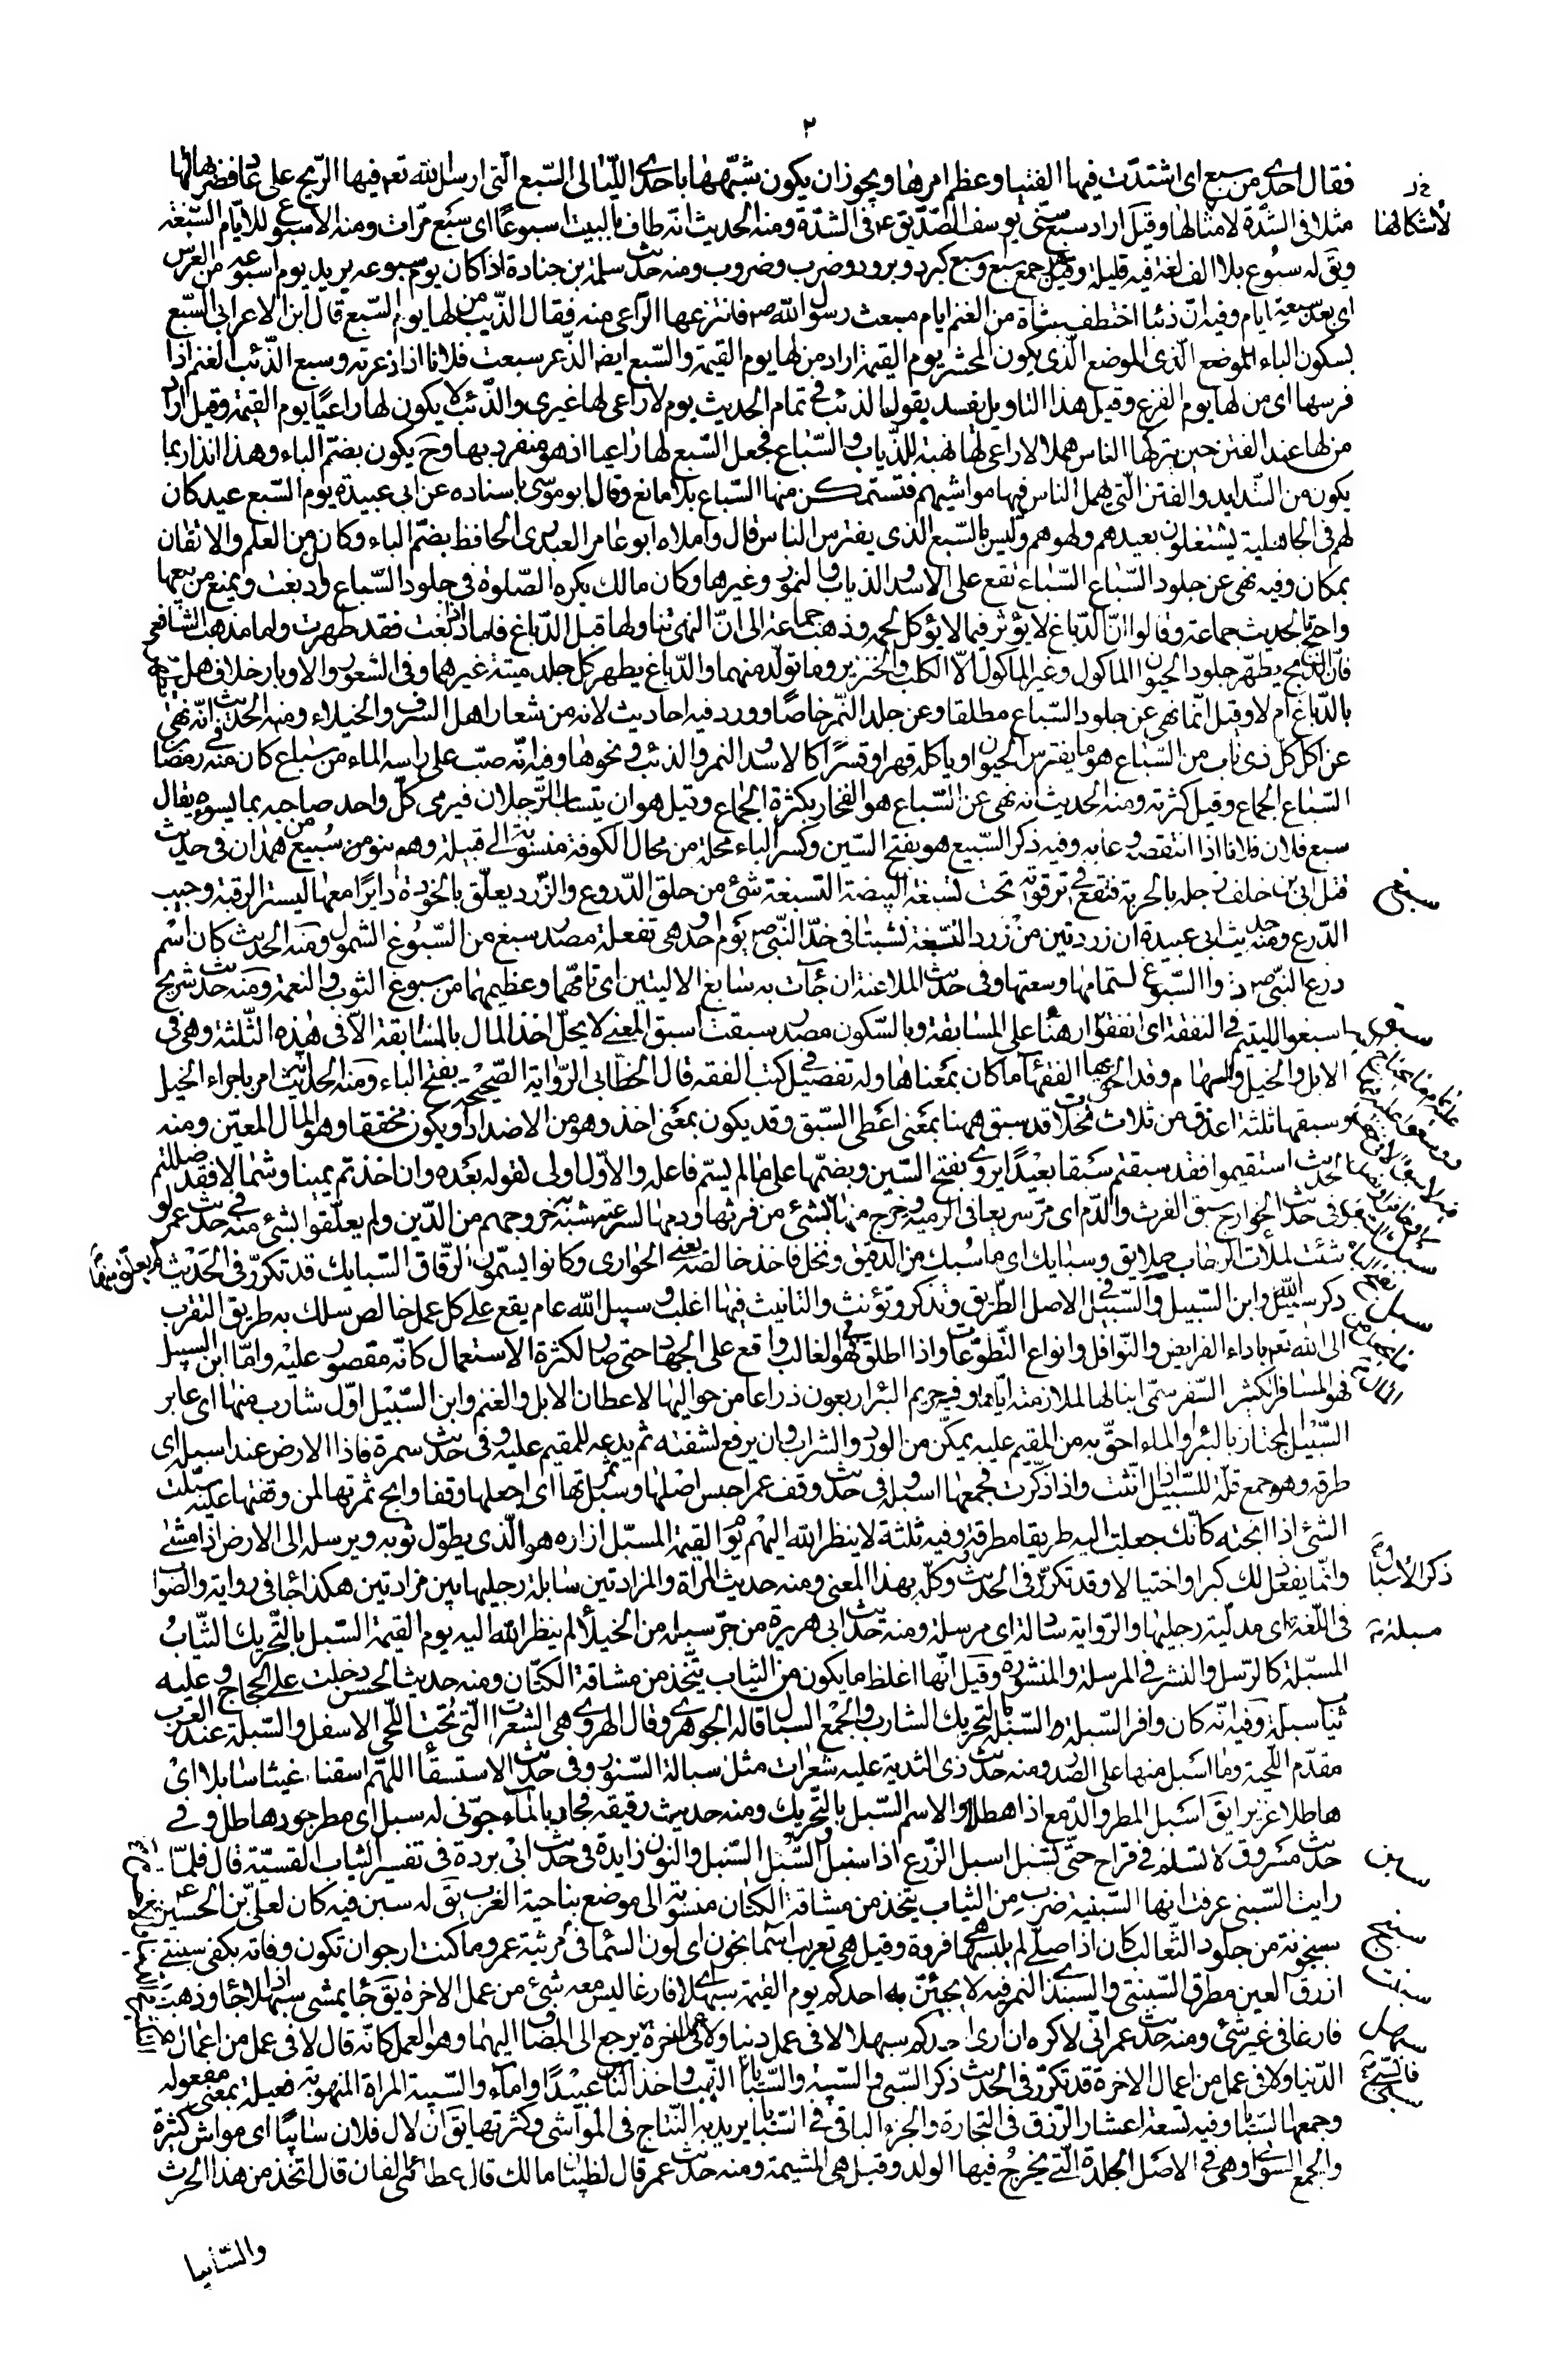 ٢
فقال احدى من سبع اى اشتدّت فيها الفتيا وعظم امرها ويجوز ان يكون شبّهها باحدى الليالى السّبع الّتى ارسل الله تعم فيها الرّيح على عاد فضربها لها
مثلا فى الشدّة لاشكالها وقيل اراد سبع سنّى يوسف الصّدّيق ع فى الشدّة ومنه الحديث انّه طاف بالبيت اسبوعًا اى سبع مرّات ومنه الاسبوع للايّام السّبعة
ويقَ له سبُوع بلا الف لغة فيه قليلة وقيل جمع سبع وسبع كبرد وبرود وضرب وضروب ومنه حديث سلمة بن جنادة اذا كان يوم سبوعه يريد يوم اسبوعه من العرس
اى بعد سبعة ايام وفيه انّ ذئبا اختطف شاة من الغنم ايام مبعث رسول الله ص فانتزعها الرّاعى منه فقال الذّيب من لها يوم السّبع قال ابن الاعرابى السّبع
بسكون الباء الموضع الّذى يكون المحشر يوم القيمة اراد من لها يوم القيمة والسّبع ايضا الذّعر سبعت فلانا اذا ذعرته وسبع الذّئب الغنم اذا
فرسها اى من لها يوم الفزع وقيل هذا التاويل يفسد بقول الذئب فى تمام الحديث يوم لا راعى لها غيرى والذّئب لا يكون لها راعيًا يوم القيمة وقيل اراد
من لها عند الفتن حين يتركها الناس هملا لا راعى لها نهبة للذّياب والسّباع فجعل السّبع لها راعيا اذ هو منفرد بها وحَ يكون بضمّ الباء وهذا انذار بما
يكون من الشّدايد والفتن الّتى يهمل الناس فيها مواشيهم فتستمكن منها السّباع بلا مانع وقال ابو موسى باسناده عن ابى عبيدة يوم السّبع عيد كان
لهم فى الجاهلية يشتغلون بعيدهم ولهوهم وليس بالسّبع الذى يفترس الناس قال واملاه ابو عامر العبدرى الحافظ بضمّ الباء وكان من العلم والاتقان
بمكان وفيه نهى عن جلود السّباع السّباع تقع على الاسد والذياب والنمور وغيرها وكان مالك يكره الصّلوة فى جلود السّباع وان دبغت ويمنع من بيعها
واحتج بالحديث جماعة وقالوا انّ الدّباغ لا يؤثّر فيما لا يؤكل لحمه وذهب جماعة الى انّ النهى تناولها قبل الدّباغ فاما اذا دبغت فقد طهرت واما مذهب الشافعى
فانّ الذّبح يطهّر جلود الحيوان الماكول وغير الماكول الّا الكلب والخنزير وما تولّد منهما والدّباغ يطهر كل جلد ميتة غيرهما وفى الشعور والاوبار خلاف هل تطهر
بالدّباغ ام لا وقيل انّما نهى عن جلود السّباع مطلقا وعن جلد النّمر خاصًّا وورد فيه احاديث لانه من شعار اهل السّرف والخيلاء ومنه الحديث انّه نهى
عن اكل كلّ ذى ناب من السّباع هو ما يفترس الحيوان وياكله قهرا وقسرًا كالاسد والنمر والذئب ونحوها وفيه انّه صبّ على راسه الماء من سباع كان منه فى رمضان
السّباع الجماع وقيل كثرته ومنه الحديث انه نهى عن السّباع هو الفخار بكثرة الجماع وقيل هو ان يتسابّ الرّجلان فيرمى كلّ واحد صاحبه بما يسوءه يقال
سبع فلان فلانا اذا انتقصه وعابه وفيه ذكر السّبيع هو بفتح السّين وكسر الباء محلة من محال الكوفة منسوبة الى قبيلة وهم بنو من سُبيع من همدان فى حديث
قتل ابى بن خلف زجله بالحربة فتقع فى ترقوته تحت تسبغة البيضة التسبغة شئ من حلق الدّروع والزّرد يعلّق بالخوذة دايرًا معها ليستر الرقبة وجيب
الدّرع ومنه حديث ابى عبيدة ان زردتين من زرد التسبغة نشبتا فى خدّ النّبى ص يوم احد وهى تفعلة مصدر سبغ من السّبُوغ الشمول ومنه الحديث كان اسْم
درع النّبى ص ذو السّبوغ لتمامها وسعتها وفى حديث الملاعنة ان جآءت به سابغ الاليتين اى تامّهما وعظيمهما من سبوغ الثوب والنعمة ومنه حديث شريح
اسبغوا لليتيم فى النفقة اى انفقوا رهنًا على المسابقة وبالسّكون مصدر سبقت اسبق المعنى لا يحلّ اخذ المال بالمسابقة الّا فى هذه الثّلثة وهى فى
الابل والخيل والسهام وقد الحق بها الفقهآء ما كان بمعناها وله تفصيل فى كتب الفقه قال الخطّابى الرّواية الصّحيحة بفتح الباء ومنه الحديث انه امر باجراء الخيل
وسبقها ثلثة اعذق من ثلاث نخلات قد سبق ههنا بمعنى اعطى السّبق وقد يكون بمعنى اخذ وهو من الاضداد ويكون مخففا وهو المال المعيّن ومنه
حديث استقيموا فقد سبقتم سبقا بعيْدًا يروى بفتح السّين وبضمّها على ما لم يسمّ فاعله والاوّل اولى لقوله بعده وان اخذتم يمينا وشمالا فقد ضللتم
وفى حديث الخوارج سبق الفرث والدّم اى مرّ سريعا فى الرمية وخرج منها لم يعلق منها بشئ من فرثها ودمها لسرعته شبّه خروجهم من الدّين ولم يعلّقوا بشئ منه فى حديث عمر لو
شئت لملأت الرحاب صلايق وسبايك اى ما سُبك من الدقيق ونخل فاخذ خالصه يعنى الحوارى وكانوا يسمّون الرّقاق السّبايك قد تكرّر فى الحَديْث
ذكر سبيل الله وابن السّبيل والسّبيل فى الاصل الطّريق ويذكر ويؤنث والتانيث فيها اغلب وسبيل الله عام يقع على كل عمل خالص سلك به طريق التقرب
الى الله تعم باداء الفرايض والنّوافل وانواع التّطوّعات واذا اطلق فهو فى الغالب واقع على الجهاد حتى صار لكثرة الاستعمال كانّه مقصور عليْه وامّا ابن السبيل
فهو المسافر الكثير السّفر سمّى ابنا لها لملازمته ايّاها وفيه حريم البئر اربعون ذراعا من حواليها لاعطان الابل والغنم وابن السّبيْل اوّل شارب منها اى عابر
السّبيل المجتاز بالبئر والماء احقّ به من المقيم عليه يمكّن من الورد والشراب وان يرفع لشفته ثم يدعه للمقيم عليه وفى حديث سمرة فاذا الارض عند اسبله اى
طرقه وهو جمع قلّة للسّبيل اذا انّثت واذا ذكّرت فجمعها اسبلة وفى حديث وقف عمر احبس اصْلها وسبّل ثمرتها اى اجعلها وقفا وابح ثمرتها لمن وقفتها عليه سبّلت
الشئ اذا ابحته كانّك جعلت اليه طريقا مطرقة وفيه ثلثة لا ينظر الله اليهم يوم القيمة المسبّل ازاره هو الّذى يطوّل ثوبه ويرسله الى الارض اذا مشى
وانّما يفعل ذلك كبرا واختيالا وقد تكرّر فى الحديث وكلّه بهذا المعنى ومنه حديث المراة والمزادتين سابلة رجليها بين مزادتين هكذا جا فى رواية والصّواب
فى اللّغة اى مدلّية رجليها والرّواية سادلة اى مرسلة ومنه حديث ابى هريرة من جرّ سبله من الخيلاء لم ينظر الله اليه يوم القيمة السّبل بالتّحريك الثّيابُ
المسبّلة كالرّسل والنشر فى المرسلة والمنشورة وقيل انّها اغلظ ما يكون من الثياب يتّخذ من مشاقة الكتّان ومنه حديث الحسن دخلت على الحجاج وعليه
ثياب سبلة وفيه انّه كان وافر السّبلة السّبلة بالتحريك الشارب والجمْع السبال قاله الجوهرى وقال الهروى هى الشعرات الّتى تحت اللّحى الاسفل والسّبلة عند العرب
مقدّم اللّحية وما اسْبل منها على الصّدر ومنه حديث ذى الثدية عليه شعرات مثل سبالة السّنور وفى حديث الاستسقآء اللهم اسقنا غيثا سابلا اىْ
هاطلا غزيرا يقَ اسْبل المطر والدّمع اذا هطلا والاسم السّبل بالتّحريك ومنه حديث رقيقة فجاد بالمآء جوّنى له سبل اى مطر جود هاطل وفى
حديث مسروق لا تسلم فى قراح حتّى يسبل اسبل الزّرع اذا سنبل والسّبل السّنبل والنون زايدة فى حديث ابى بردة فى تفسير الثياب القسيّة قال فلمّا
رايت السّبنى عرفت انها السّبنية ضرب مِن الثياب يتخذ من مشاقة الكتان منسوبة الى موضع بناحية المغرب يقَ له سبن فيه كان لعلى بن الحسين ع
سبنجونة من جلود الثّعالب كان اذا صلّى لم يلبسها هى فروة وقيل هى تعريب آسمانجون اى لون السّما فى مرثية عمر وما كنت ارجو ان تكون وفاته بكفى سبنتى
ازرق العين مطرق السّبنتى والسبندى النمر فيه لا يجيئنّ احدكم يوم القيمة سبهللا اى فارغا ليس معه شئ من عمل الاخرة يقَ جا يمشى سبهللا اذا جا وذهب
فارغا فى غير شئ ومنه حديث عمر انّى لاكره ان ارى احدكم سبهللا لا فى عمل دنيا ولا عمل اخرة يرجع الى المضاف اليهما وهو العمل كانّه قال لا فى عمل من اعمال
الدّنيا ولا فى عمل من اعمال الاخرة قد تكرّر فى الحديث ذكر السّبى والسّبية والسّبايا النّهب واخذ الناس عبيْدًا وامآء والسّبية المراة المنهوبة فعيلة بمعنى مفعوله
وجمعها السّبايا وفيه تسعة اعشار الرّزق فى التجارة والجزء الباقى فى السّابيا يريد به النّتاج فى المواشى وكثرتها يقَ انّ لال فلان سابيًا اى مواش كثيرة
والجمع السّوابى وهى فى الاصْل الجلدة الّتى يخرج فيها الولد وقيل هى المشيمة ومنه حديث عمر قال لظبيان ما مالك قال عطائى الفان قال اتّخذ من هذا الحرث
والسّابيا
لاشكالها
سبغ
سبق
سبك
سبل
ذكر الاسبال
مسبلة
سبن
سبنج
سبنت
سبهل
سبى